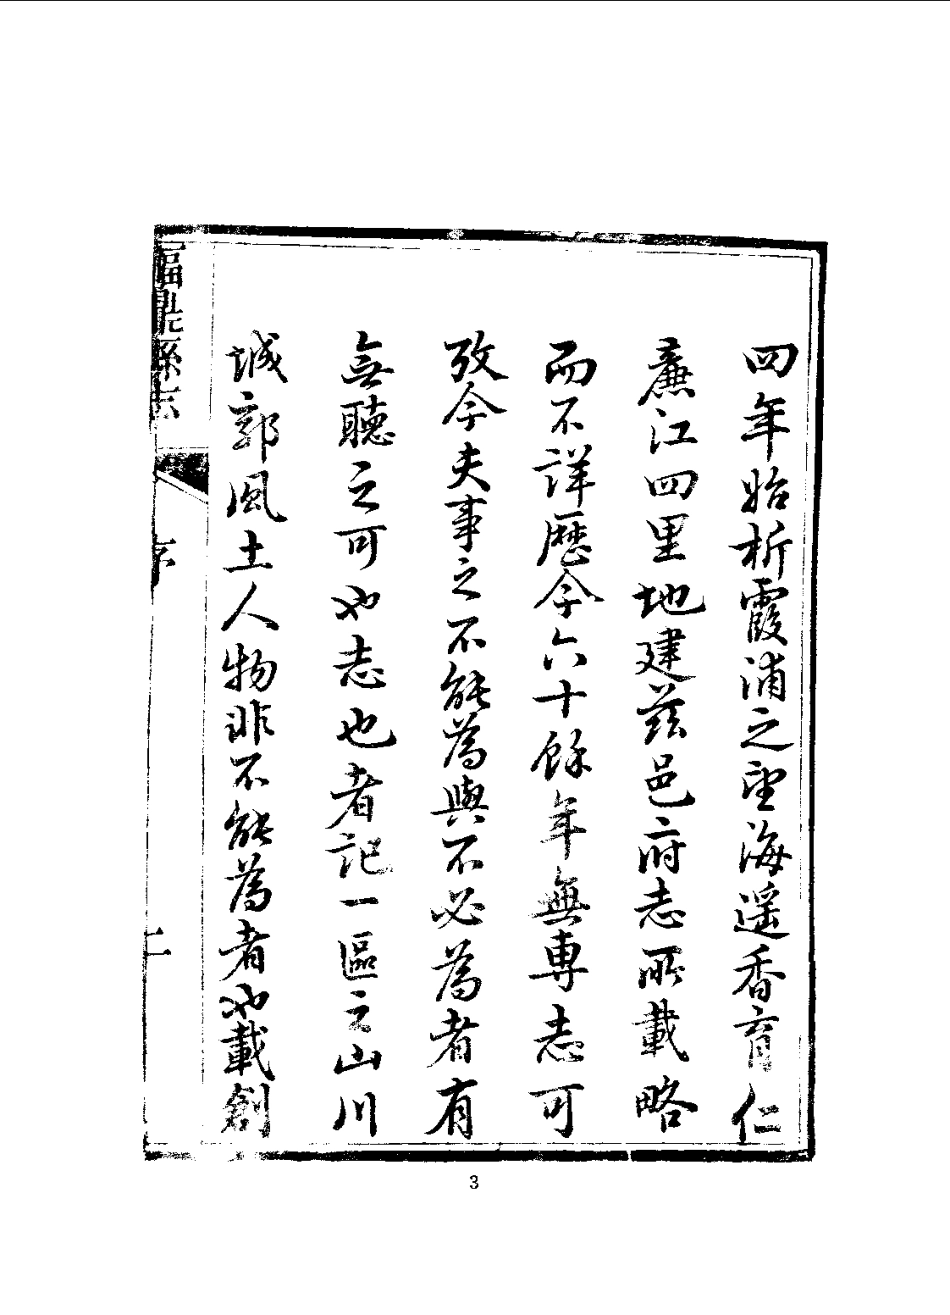 四年始析霞浦之望海遥香育仁
廉江四里地建兹邑府志所載略
而不詳歷今六十餘年無專志可
攷今夫事之不能為與不必為者有
無聽之可也志也者記一區之山川
城郭風土人物非不能為者也載創
福鼎縣志
序
二
3